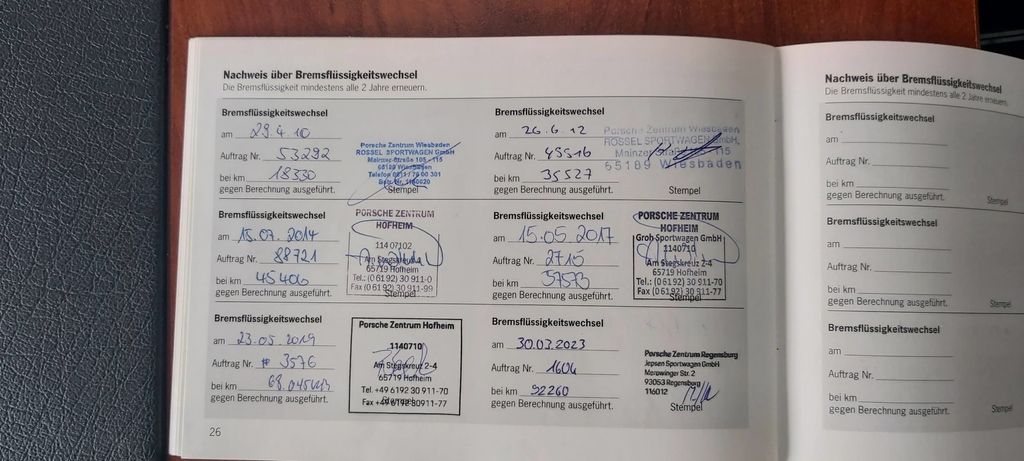 Nachweis über Bremsflüssigkeitswechsel
Die Bremsflüssigkeit mindestens alle 2 Jahre erneuern.
Bremsflüssigkeitswechsel
am 29.4.10
Auftrag Nr. 53292
bei km 18330
gegen Berechnung ausgeführt.
Porsche Zentrum Wiesbaden
ROSSEL SPORTWAGEN GmbH
Mainzer Straße 105 - 115
65189 Wiesbaden
Stempel
Bremsflüssigkeitswechsel
am 26.6.12
Auftrag Nr. 45516
bei km 35527
gegen Berechnung ausgeführt.
Porsche Zentrum Wiesbaden
ROSSEL SPORTWAGEN GmbH
Mainzer 115
65189 Wiesbaden
Stempel
Bremsflüssigkeitswechsel
am 15.07.2014
Auftrag Nr. 88721
bei km 45406
gegen Berechnung ausgeführt.
PORSCHE ZENTRUM
HOFHEIM
11407102
Am Stegskreuz 2-4
65719 Hofheim
Tel.: (06192) 30 911-0
Fax (06192) 30 911-99
Stempel
Bremsflüssigkeitswechsel
am 15.05.2017
Auftrag Nr. 2715
bei km 57573
gegen Berechnung ausgeführt.
PORSCHE ZENTRUM
HOFHEIM
Groh Sportwagen GmbH
1140710
Am Stegskreuz 2-4
65719 Hofheim
Tel.: (06192) 30 911-70
Fax (06192) 30 911-77
Stempel
Bremsflüssigkeitswechsel
am 23.05.2019
Auftrag Nr. # 3576
bei km 68.045km
gegen Berechnung ausgeführt.
Porsche Zentrum Hofheim
1140710
Am Stegskreuz 2-4
65719 Hofheim
Tel. +49 6192 30 911-70
Fax +49 6192 30911-77
Stempel
Bremsflüssigkeitswechsel
am 30.03.2023
Auftrag Nr. 1604
bei km 92260
gegen Berechnung ausgeführt.
Porsche Zentrum Regensburg
Jepsen Sportwagen GmbH
Merowinger Str. 2
93053 Regensburg
116012
Stempel
26
Nachweis über Bremsflüssigkeitswechsel
Die Bremsflüssigkeit mindestens alle 2 Jahre erneuern.
Bremsflüssigkeitswechsel
am
Auftrag Nr.
bei km
gegen Berechnung ausgeführt.
Stempel
Bremsflüssigkeitswechsel
am
Auftrag Nr.
bei km
gegen Berechnung ausgeführt.
Stempel
Bremsflüssigkeitswechsel
am
Auftrag Nr.
bei km
gegen Berechnung ausgeführt.
Stempel